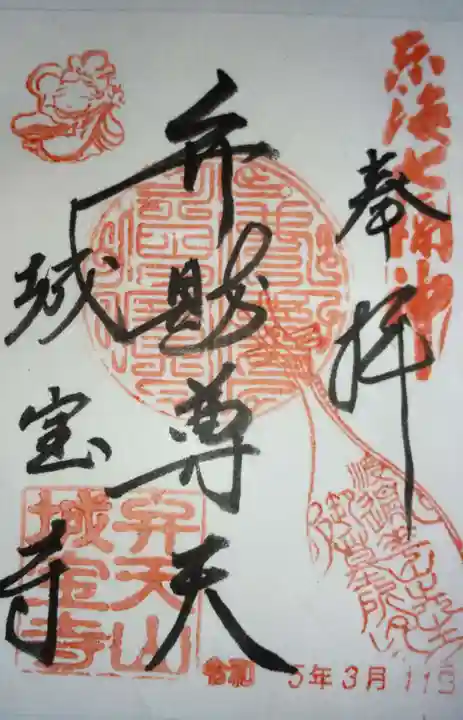 東海七福神
奉拝
弁財尊天
城宝寺
弁天山
城宝寺
令和 5年3月11日